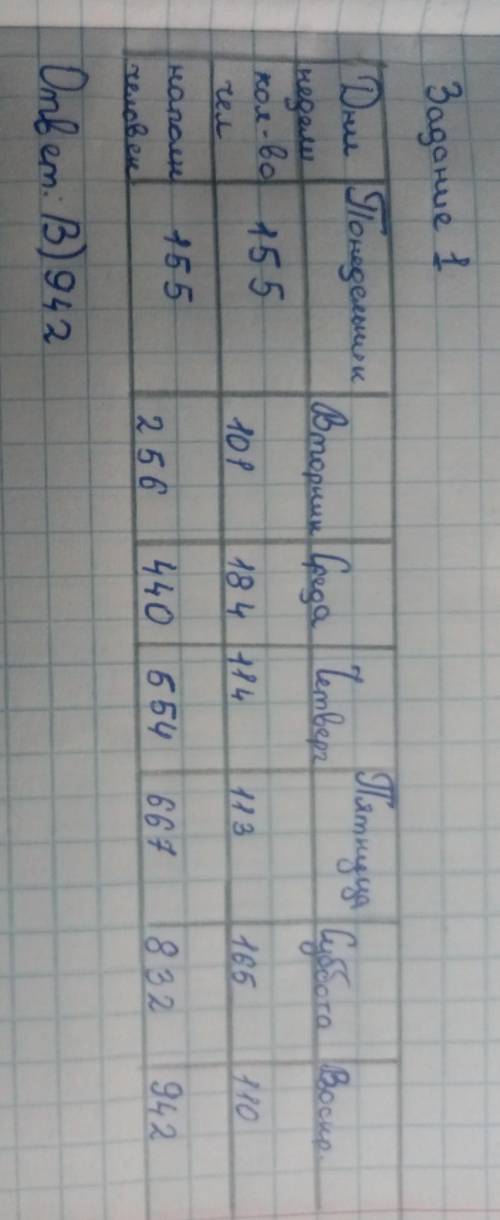 Задание 1
Дни недели Понедельник Вторник Среда Четверг Пятница Суббота Воскр.
кол-во чел 155 101 184 114 113 165 110
накопл человек 155 256 440 554 667 832 942
Ответ: В) 942